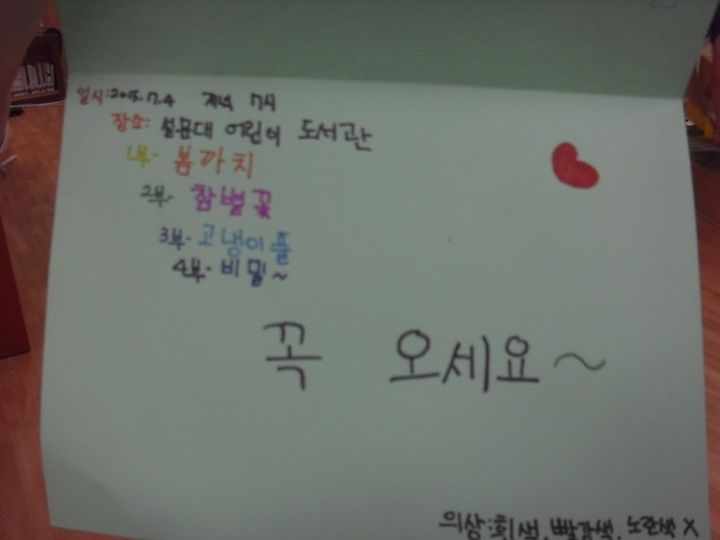 일시: 2015. 7. 4 저녁 7시
장소: 설문대 어린이 도서관
1부- 봄까치
2부- 참별꽃
3부- 고냉이풀
4부- 비밀~
꼭 오세요~
의상: 흰색, 빨강색, 노란색 X